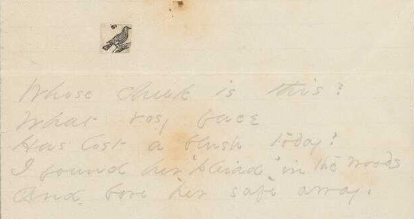 Whose cheek is this?
What rosy face
Has lost a blush today?
I found her "pleiad" in the woods
And bore her safe away.